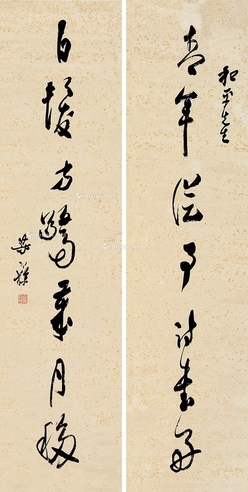 和平先生
青年從事詩書好
白髮方驚歲月移